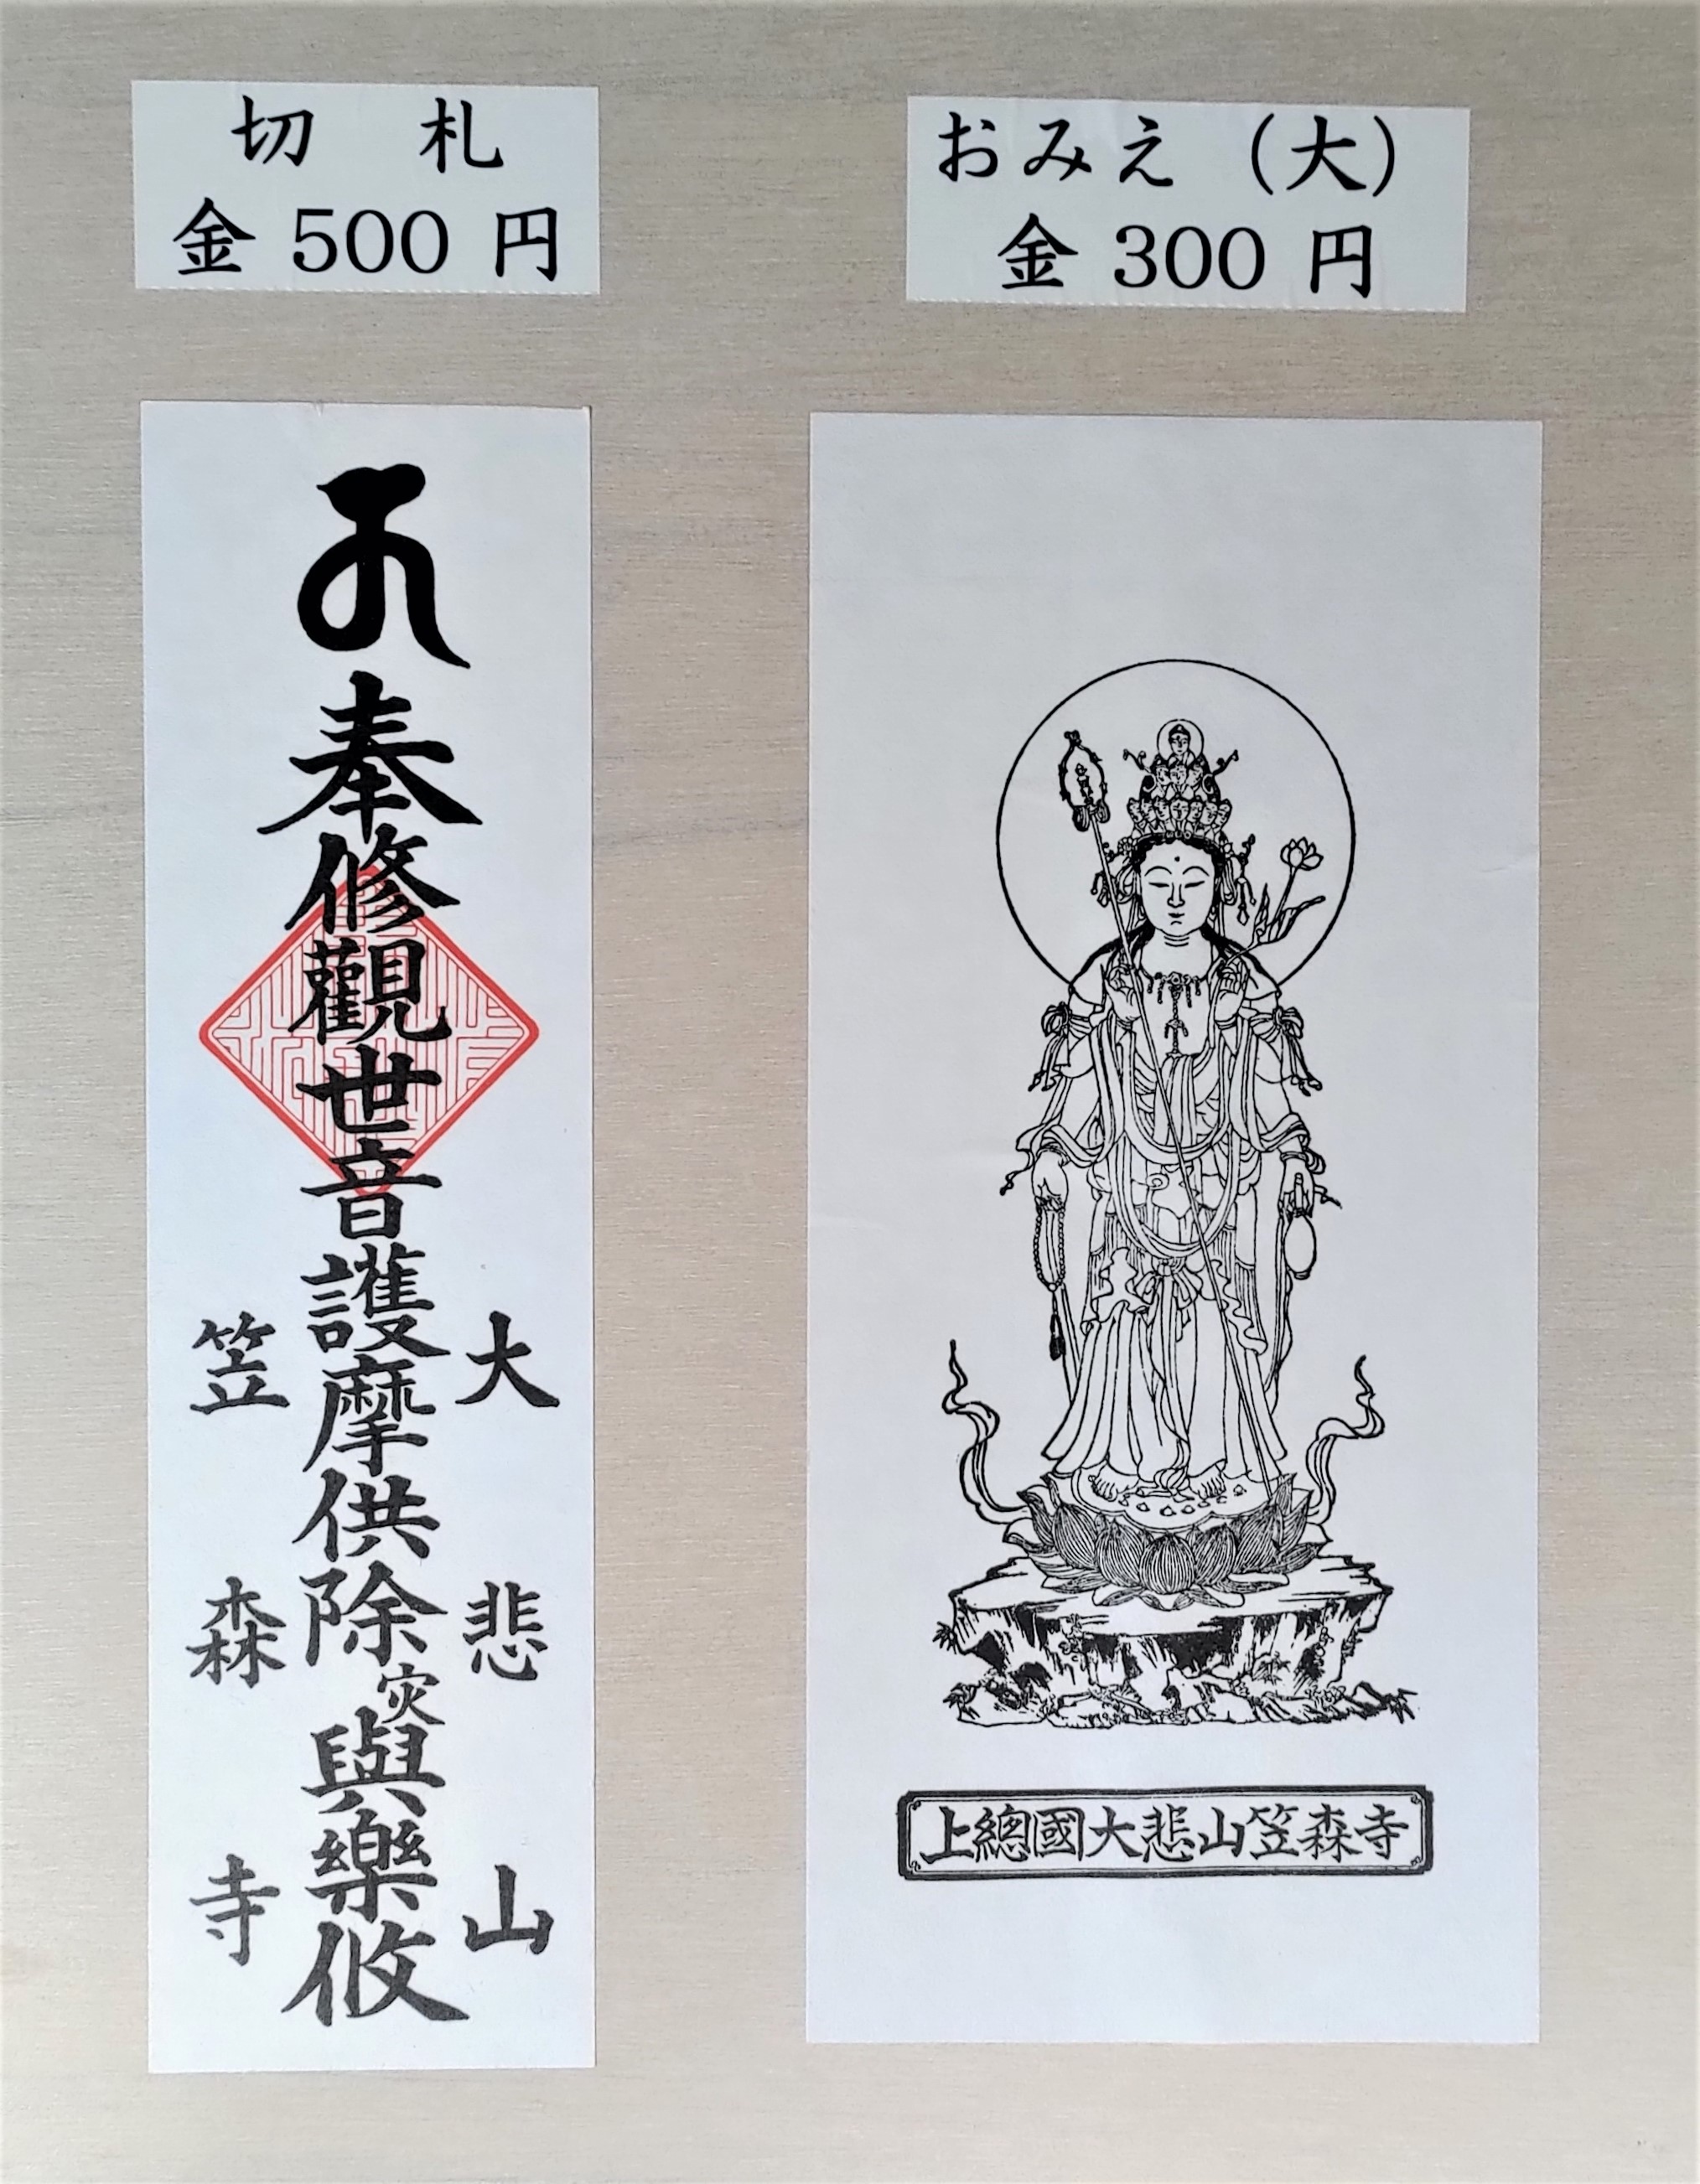 切札
金500円
おみえ（大）
金300円
奉修觀世音護摩供除災與樂攸
大悲山
笠森寺
上總國大悲山笠森寺